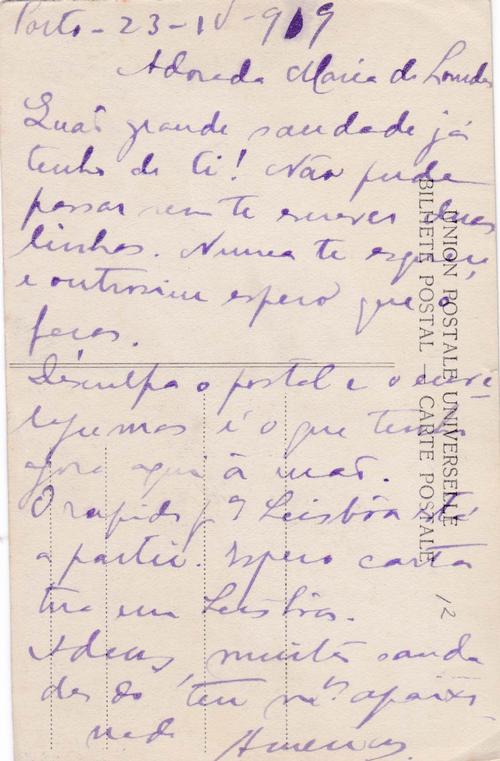 Porto - 23 - IV - 919
Adorada Maria de Lourdes
Quão grande saudade já
tenho de ti! Não pude
passar sem te escrever duas
linhas. Nunca te esqueci
e outrosim espero que o
faças.
Desculpa o postal e o
mas é o que tenho
agora aqui à mão.
O rapido pª Lisbôa está
a partir. Espero carta
tua em Lisbôa.
Adeus, muitas sauda
des do teu apaixo
nado
UNION POSTALE UNIVERSELLE
BILHETE POSTAL — CARTE POSTALE
12